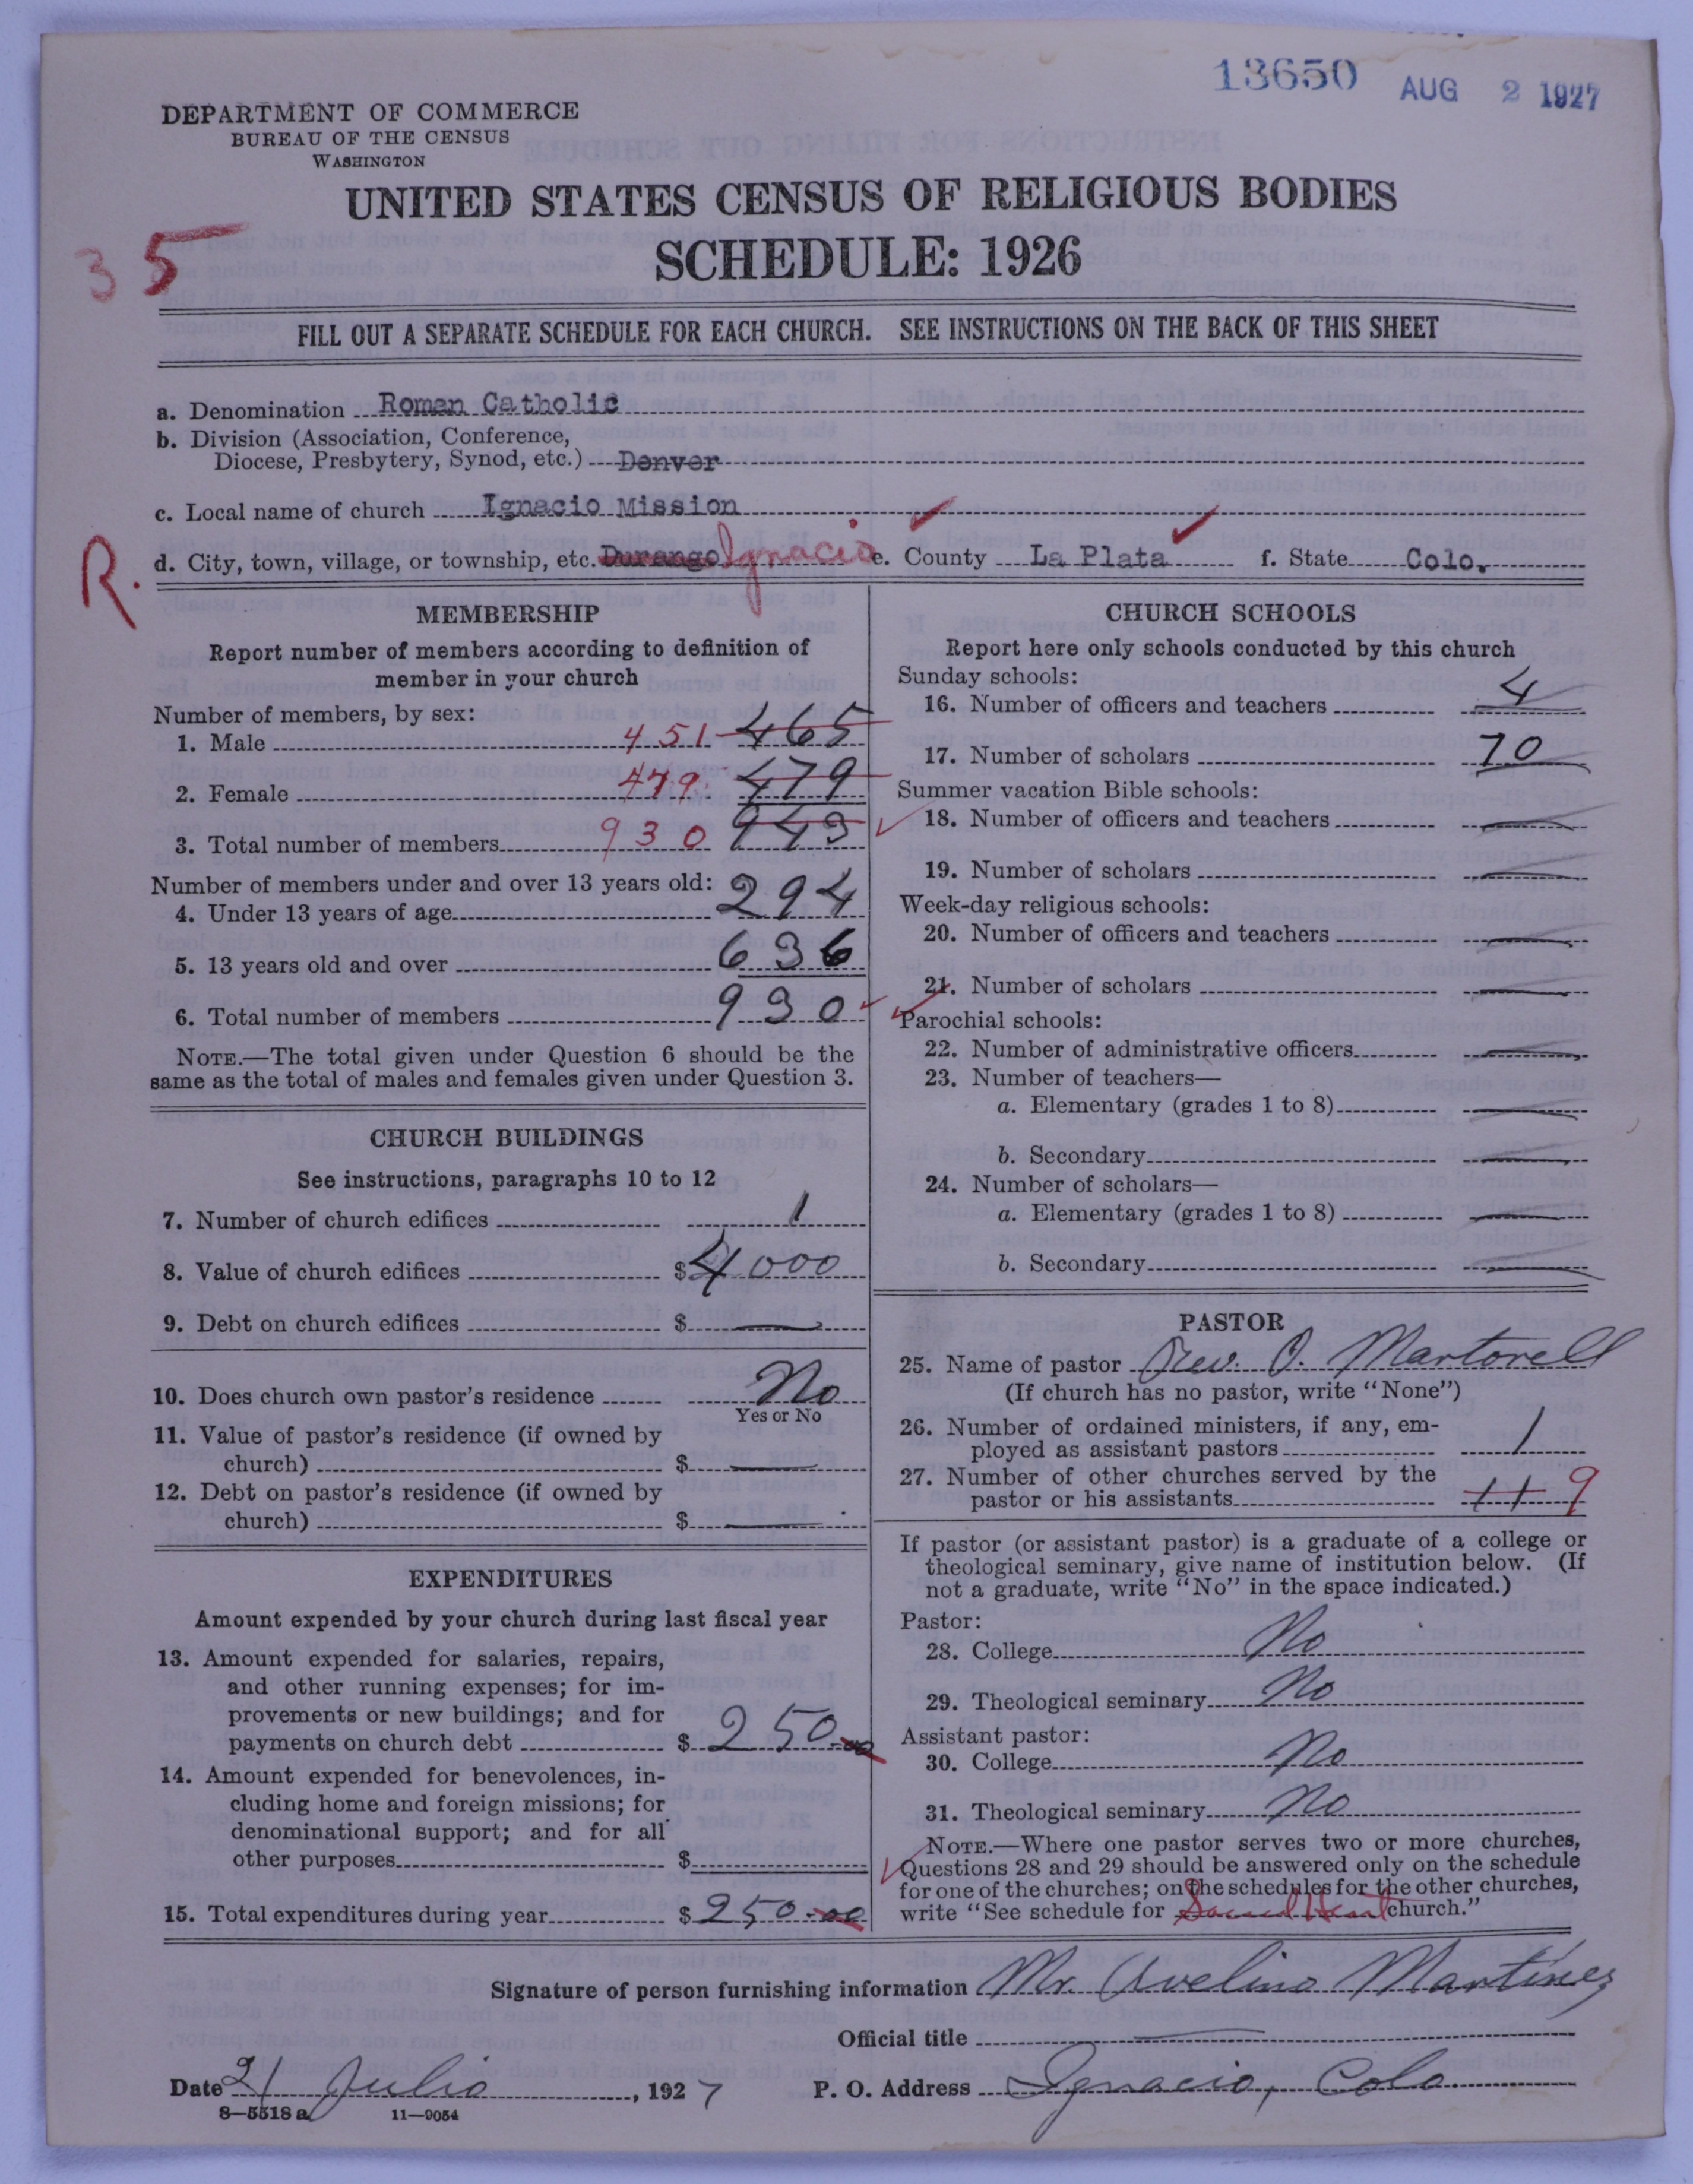 13650 AUG 2 1927
DEPARTMENT OF COMMERCE
BUREAU OF THE CENSUS
WASHINGTON
UNITED STATES CENSUS OF RELIGIOUS BODIES
SCHEDULE: 1926
35
FILL OUT A SEPARATE SCHEDULE FOR EACH CHURCH. SEE INSTRUCTIONS ON THE BACK OF THIS SHEET
a. Denomination Roman Catholic
b. Division (Association, Conference,
Diocese, Presbytery, Synod, etc.) Denver
c. Local name of church Ignacio Mission
R.
d. City, town, village, or township, etc. Durango Ignacio e. County La Plata f. State Colo.
MEMBERSHIP
Report number of members according to definition of
member in your church
Number of members, by sex:
1. Male 451 465
2. Female 479 479
3. Total number of members 930 943
Number of members under and over 13 years old:
4. Under 13 years of age 294
5. 13 years old and over 636
6. Total number of members 930
NOTE.—The total given under Question 6 should be the
same as the total of males and females given under Question 3.
CHURCH BUILDINGS
See instructions, paragraphs 10 to 12
7. Number of church edifices 1
8. Value of church edifices $ 4000
9. Debt on church edifices $ —
10. Does church own pastor's residence No
Yes or No
11. Value of pastor's residence (if owned by
church) $ —
12. Debt on pastor's residence (if owned by
church) $ —
EXPENDITURES
Amount expended by your church during last fiscal year
13. Amount expended for salaries, repairs,
and other running expenses; for im-
provements or new buildings; and for
payments on church debt $ 250.00
14. Amount expended for benevolences, in-
cluding home and foreign missions; for
denominational support; and for all
other purposes $
15. Total expenditures during year $ 250.00
CHURCH SCHOOLS
Report here only schools conducted by this church
Sunday schools:
16. Number of officers and teachers 4
17. Number of scholars 70
Summer vacation Bible schools:
18. Number of officers and teachers —
19. Number of scholars —
Week-day religious schools:
20. Number of officers and teachers —
21. Number of scholars —
Parochial schools:
22. Number of administrative officers —
23. Number of teachers—
a. Elementary (grades 1 to 8) —
b. Secondary —
24. Number of scholars—
a. Elementary (grades 1 to 8) —
b. Secondary —
PASTOR
25. Name of pastor Rev. J. Martorell
(If church has no pastor, write "None")
26. Number of ordained ministers, if any, em-
ployed as assistant pastors 1
27. Number of other churches served by the
pastor or his assistants 11 9
If pastor (or assistant pastor) is a graduate of a college or
theological seminary, give name of institution below. (If
not a graduate, write "No" in the space indicated.)
Pastor:
28. College No
29. Theological seminary No
Assistant pastor:
30. College No
31. Theological seminary No
NOTE.—Where one pastor serves two or more churches,
Questions 28 and 29 should be answered only on the schedule
for one of the churches; on the schedules for the other churches,
write "See schedule for Sacred Heart church."
Signature of person furnishing information Mr. Avelino Martinez
Official title —
Date 21 Julio, 1927 P. O. Address Ignacio, Colo.
8—5518 a 11—9054